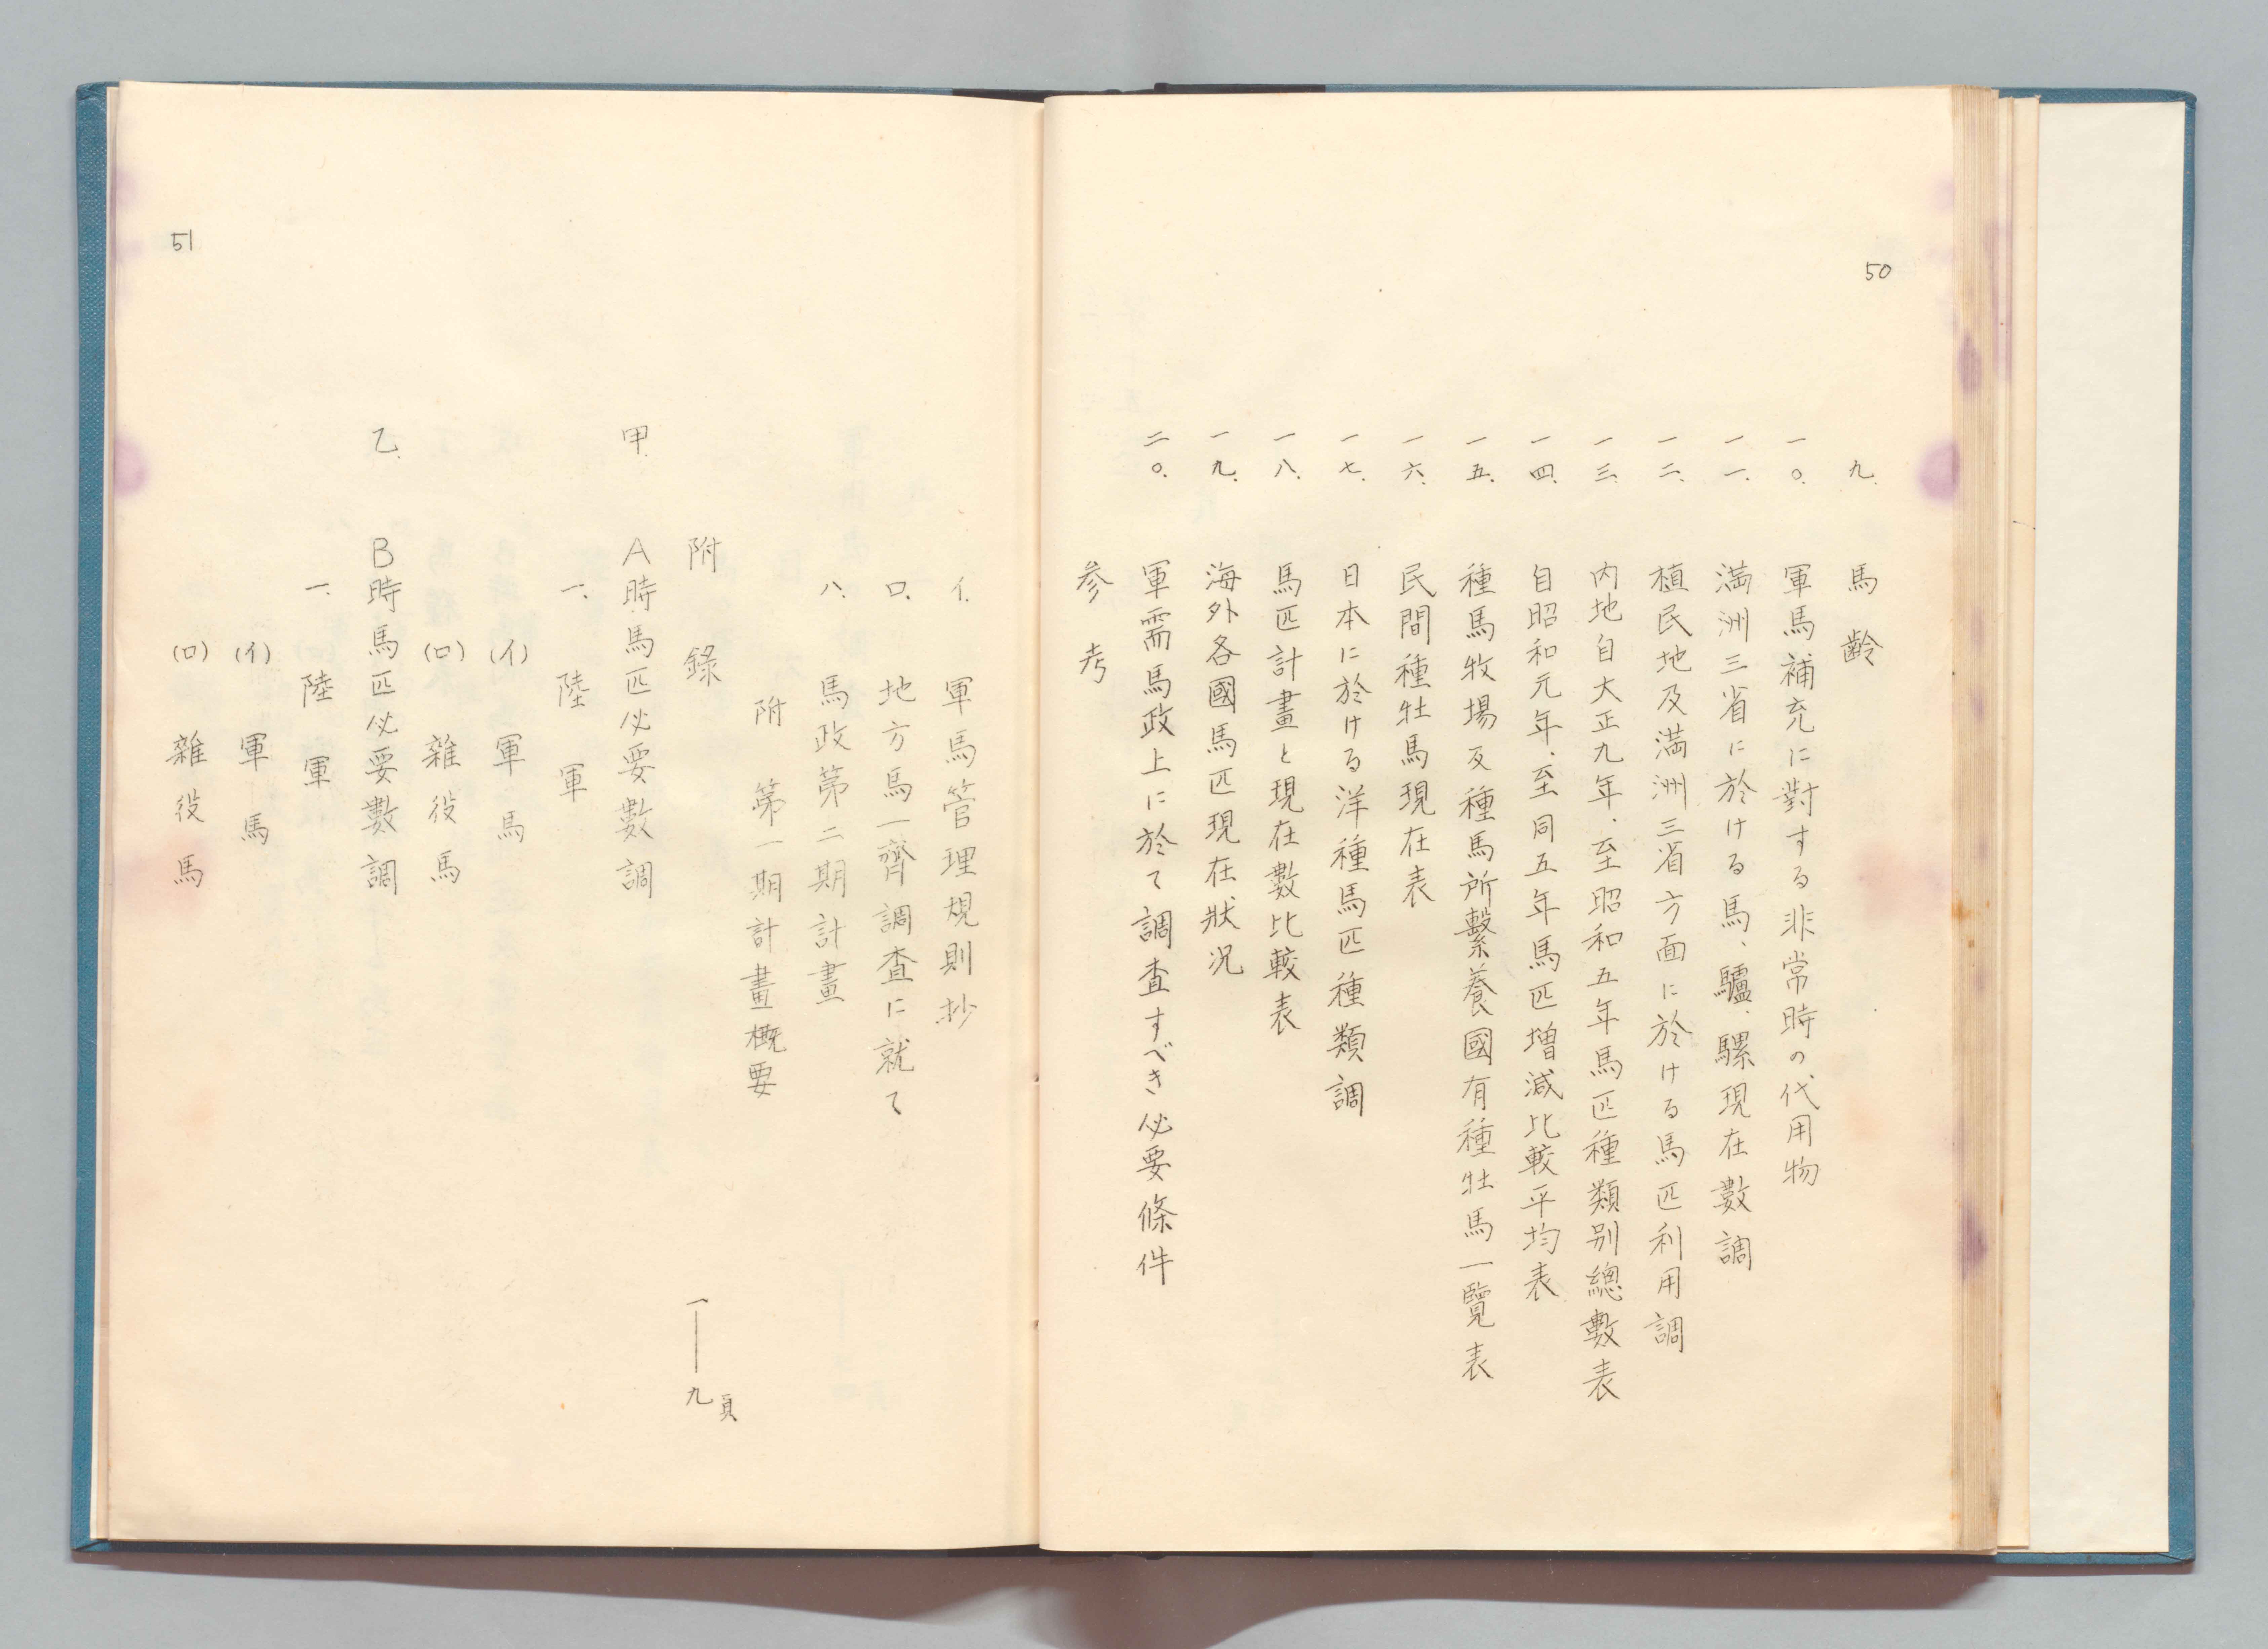 50
九、馬齡
一〇、軍馬補充に對する非常時の代用物
一一、滿洲三省に於ける馬、驢、騾現在數調
一二、植民地及滿洲三省方面に於ける馬匹利用調
一三、内地自大正九年、至昭和五年馬匹種類別總數表
一四、自昭和元年、至同五年馬匹増減比較平均表
一五、種馬牧場及種馬所繫養國有種牡馬一覽表
一六、民間種牡馬現在表
一七、日本に於ける洋種馬匹種類調
一八、馬匹計畫と現在數比較表
一九、海外各國馬匹現在狀況
二〇、軍需馬政上に於て調査すべき必要條件
参考
イ、軍馬管理規則抄
ロ、地方馬一齊調査に就て
ハ、馬政第二期計畫
附 第一期計畫概要
附錄 一——九頁
甲、A時馬匹必要數調
一、陸軍
(イ)軍馬
(ロ)雜役馬
乙、B時馬匹必要數調
一、陸軍
(イ)軍馬
(ロ)雜役馬
51